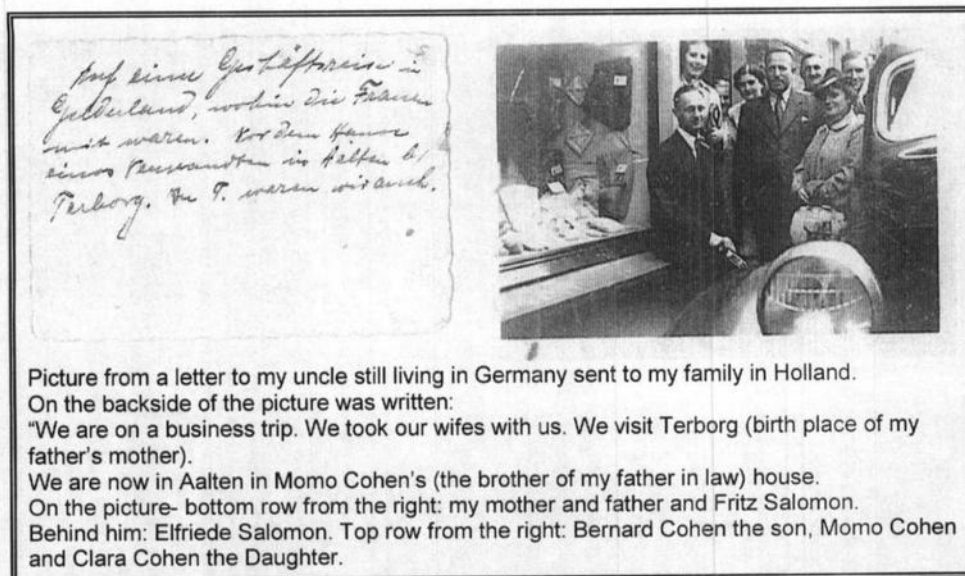 Auf einer Geschäftsreise in
Gelderland, wohin die Frauen
mit waren. Vor dem Hause
eines Verwandten in Aalten b/
Terborg. In T. waren wir auch.
Picture from a letter to my uncle still living in Germany sent to my family in Holland.
On the backside of the picture was written:
“We are on a business trip. We took our wifes with us. We visit Terborg (birth place of my
father's mother).
We are now in Aalten in Momo Cohen's (the brother of my father in law) house.
On the picture- bottom row from the right: my mother and father and Fritz Salomon.
Behind him: Elfriede Salomon. Top row from the right: Bernard Cohen the son, Momo Cohen
and Clara Cohen the Daughter.